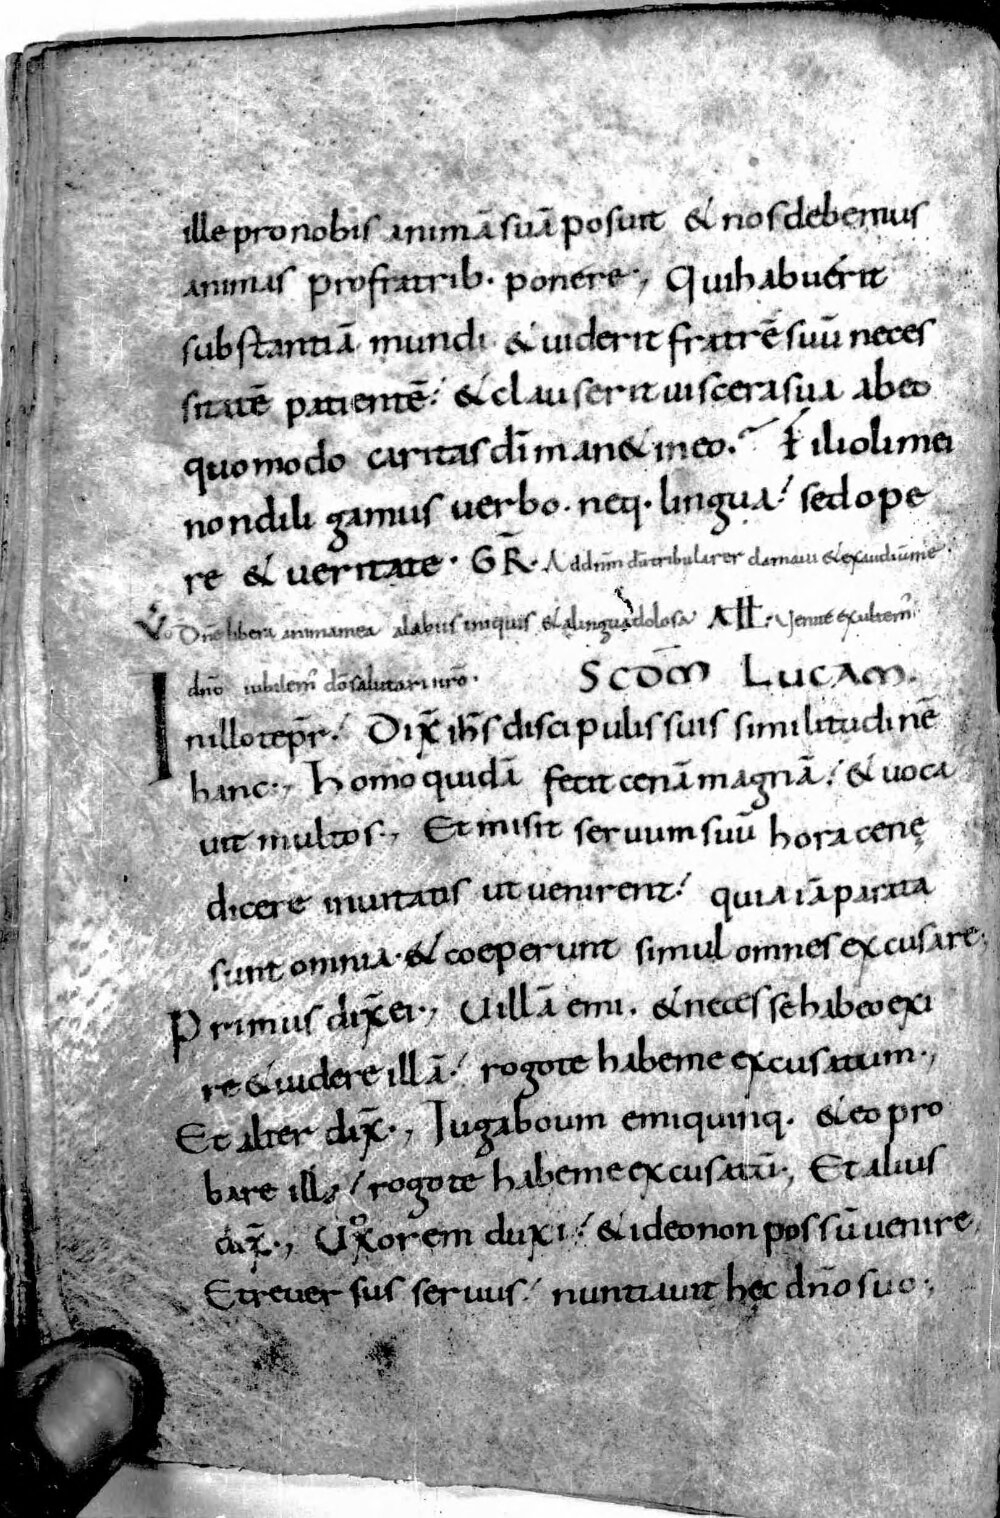 ille pro nobis animā suā posuit & nos debemus
animas pro fratrib· ponere·, Qui habuerit
substantiā mundi & uiderit fratrē suū neces
sitatē patientē! & clauserit uiscera sua ab eo
quomodo caritas dī man& in eo. Filioli mei
non diligamus uerbo. neq· lingua! sed ope
re & ueritate· GR̄. Ad dn̄m dū tribularer clamaui & exaudiū me
V̄o Dn̄e libera anima mea a labiis iniquis & a lingua dolosa ALL. Uenite exultem̄
dn̄o iubilem̄ dō salutari nr̄o· SCD̄M LUCAM.
In illo tep̄r! Dix̄ ih̄s discipulis suis similitudinē
hanc·, Homo quidā fecit cenā magnā! & uoca
uit multos·, Et misit seruum suū hora cenę
dicere inuitatis ut uenirent! quia iā parata
sunt omnia· & coeperunt simul omnes excusare·,
Primus dix̄ ei·, Uillā emi. & necesse habeo exi
re & uidere illā! rogo te habe me excusatum·,
Et alter dix̄·, Iuga boum emi quinq· & eo pro
bare illa! rogo te habe me excusatū·, Et alius
dix̄·, Uxorem duxi! & ideo non possū uenire,
Et reuersus seruus! nuntiauit hęc dn̄o suo·,